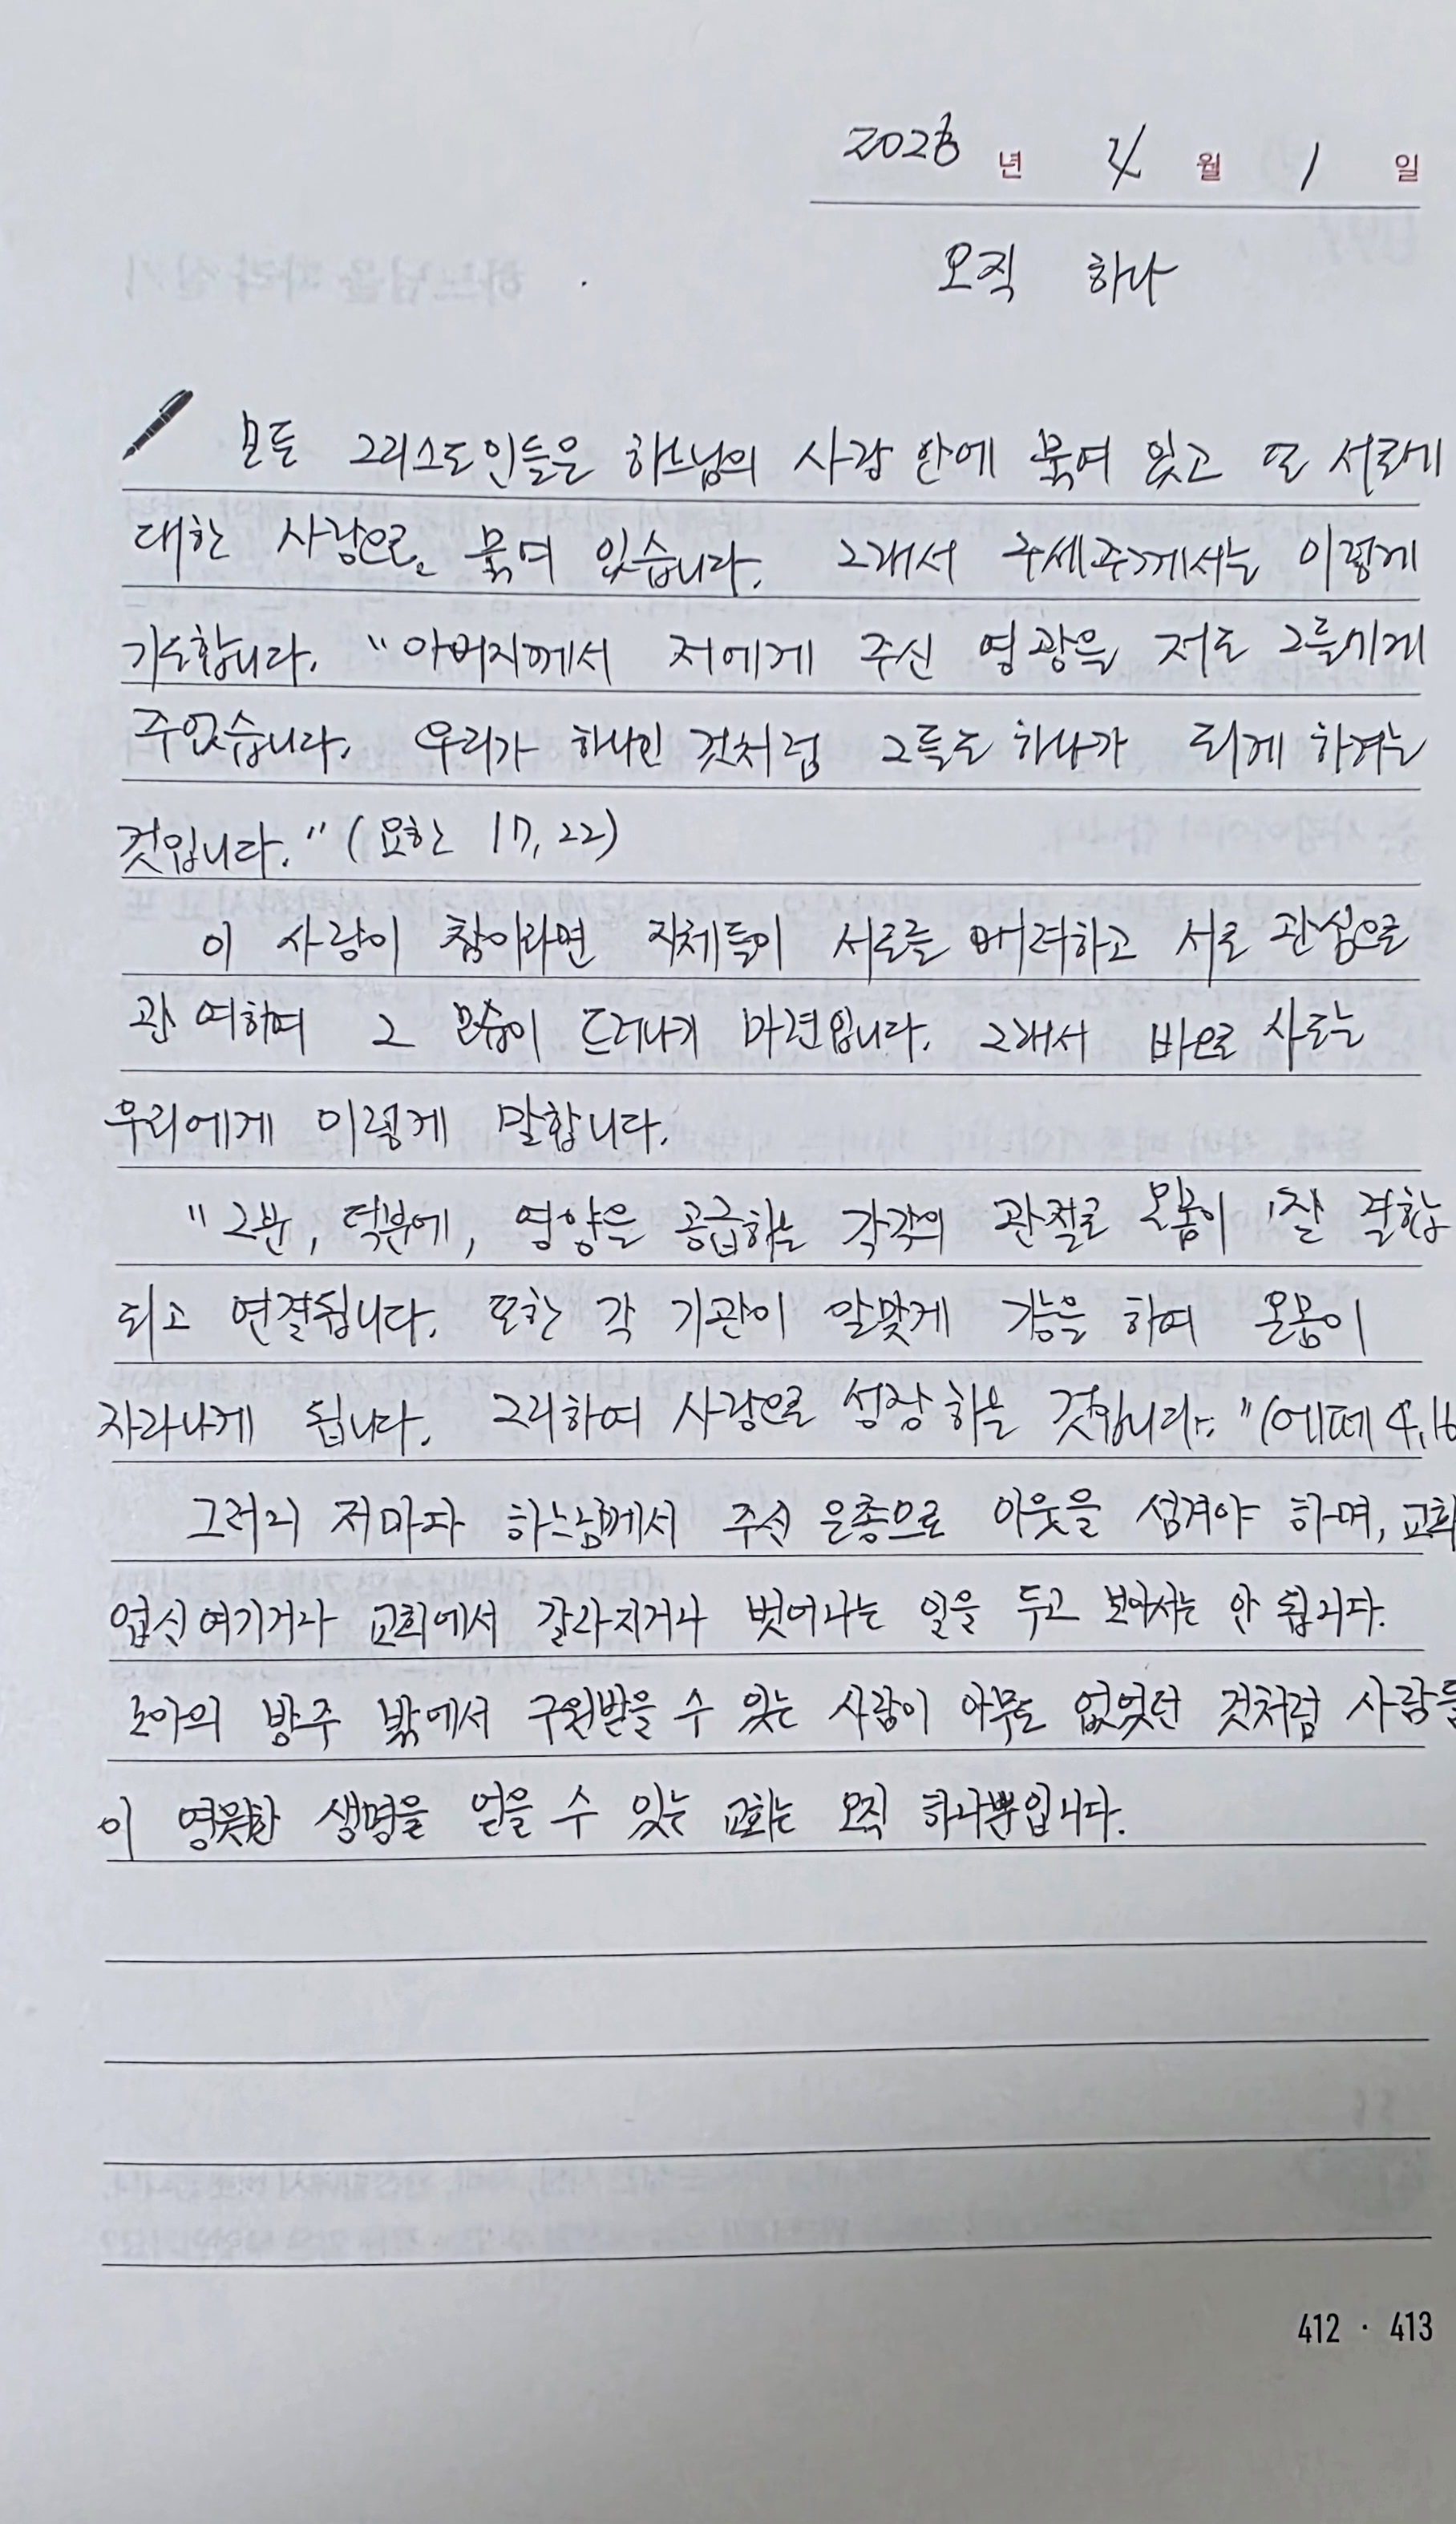 2026 년 4 월 1 일
오직 하나
모든 그리스도인들은 하느님의 사랑 안에 묶여 있고 또 서로에
대한 사랑으로 묶여 있습니다. 그래서 구세주께서는 이렇게
기도합니다. "아버지께서 저에게 주신 영광을 저도 그들에게
주었습니다. 우리가 하나인 것처럼 그들도 하나가 되게 하려는
것입니다." (요한 17, 22)
이 사랑이 참이라면 지체들이 서로를 배려하고 서로 관심으로
관여하여 그 모습이 드러나기 마련입니다. 그래서 바오로 사도는
우리에게 이렇게 말합니다.
"그분, 덕분에, 영양을 공급하는 각각의 관절로 온몸이 잘 결합
되고 연결됩니다. 또한 각 기관이 알맞게 기능을 하여 온몸이
자라나게 됩니다. 그리하여 사랑으로 성장하는 것입니다." (에페 4,16
그러니 저마다 하느님께서 주신 은총으로 이웃을 섬겨야 하며, 교회
업신여기거나 교회에서 갈라지거나 벗어나는 일을 두고 보아서는 안 됩니다.
노아의 방주 밖에서 구원받을 수 있는 사람이 아무도 없었던 것처럼 사람들
이 영원한 생명을 얻을 수 있는 교회는 오직 하나뿐입니다.
412 · 413